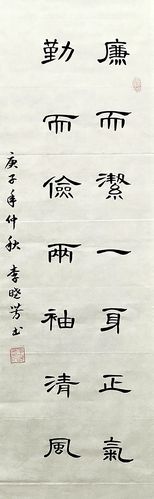 廉而潔一身正氣
勤而儉兩袖清風
庚子年仲秋 李曉芳书